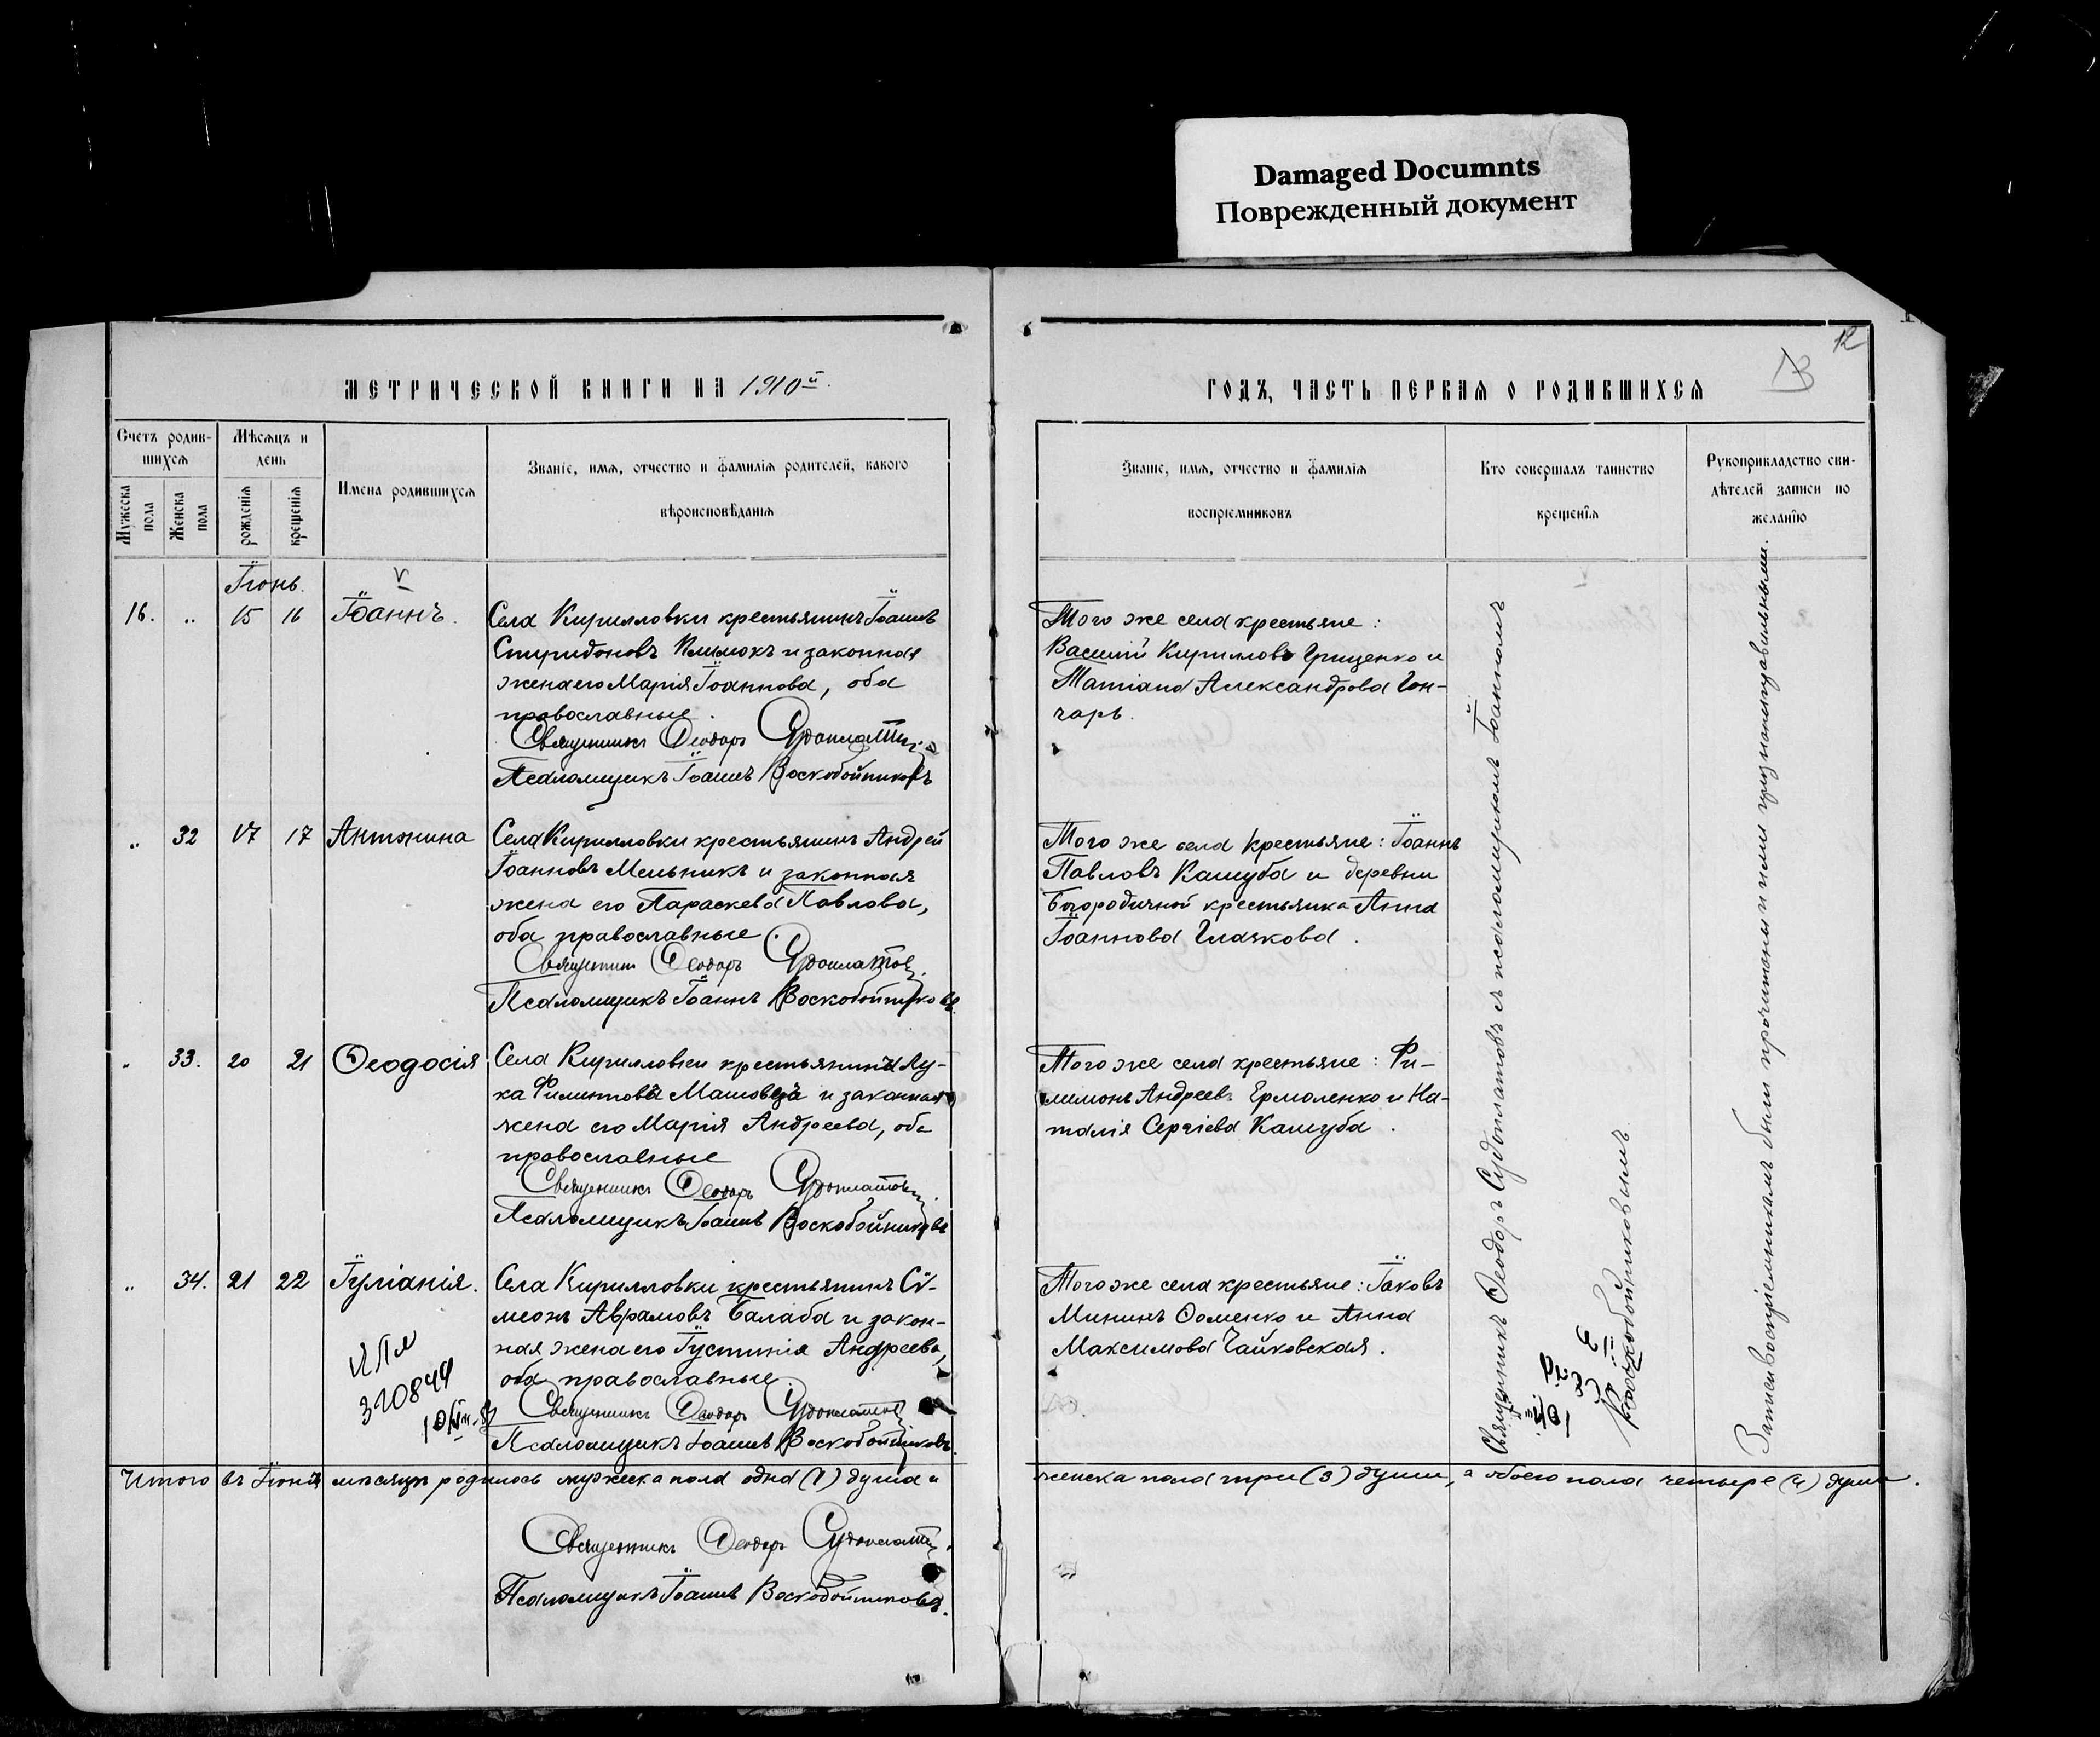 Damaged Documnts
Поврежденный документ
12
МЕТРИЧЕСКОЙ КНИГИ НА 1910й
ГОДЪ, ЧАСТЬ ПЕРВАЯ О РОДИВШИХСЯ
Счетъ родив-
шихся
Мужеска
пола
Женска
пола
Мѣсяцъ и
день
рожденія
крещенія
Имена родившихся
Званіе, имя, отчество и фамилія родителей, какого
вѣроисповѣданія
Званіе, имя, отчество и фамилія
воспріемниковъ
Кто совершалъ таинство
крещенія
Рукоприкладство сви-
дѣтелей записи по
желанію
Іюнь.
16. „ 15 16 Іоаннъ.
Села Кирилловки крестьянинъ Іоаннъ
Спиридоновъ Климокъ и законная
жена его Марія Іоаннова, оба
православные.
Священникъ Ѳеодоръ Судоплатовъ
Псаломщикъ Іоаннъ Воскобойниковъ
Того же села крестьяне:
Василій Кирилловъ Грищенко и
Татіана Александрова Гон-
чарь.
„ 32 17 17 Антонина
Села Кирилловки крестьянинъ Андрей
Іоанновъ Мельникъ и законная
жена его Параскева Павлова,
оба православные.
Священникъ Ѳеодоръ Судоплатовъ
Псаломщикъ Іоаннъ Воскобойниковъ
Того же села крестьяне: Іоаннъ
Павловъ Кашуба и деревни
Богородичной крестьянка Анна
Іоаннова Глазкова.
„ 33. 20 21 Ѳеодосія
Села Кирилловки крестьянинъ Лу-
ка Филиповъ и законная
жена его Марія Андреева, оба
православные
Священникъ Ѳеодоръ Судоплатовъ
Псаломщикъ Іоаннъ Воскобойниковъ
Того же села крестьяне: Фи-
лимонъ Андреевъ Ермоленко и На-
талія Сергіева Кашуба.
„ 34. 21 22 Іуліанія.
Села Кирилловки крестьянинъ Сѵ-
меонъ Аврамовъ Балаба и закон-
ная жена его Іустинія Андреева,
оба православные.
Священникъ Ѳеодоръ Судоплатовъ
Псаломщикъ Іоаннъ Воскобойниковъ.
Того же села крестьяне: Іаковъ
Мининъ Ѳоменко и Анна
Максимова Чайковская.
320844
Священникъ Ѳеодоръ Судоплатовъ съ псаломщикомъ Іоанномъ
Воскобойниковымъ.
Записи воспріемникамъ были прочитаны и ими признаны правильными.
Итого въ Іюнѣ мѣсяцѣ родилось мужеска пола одна (1) душа и
женска пола три (3) души, а обоего пола четыре (4) души.
Священникъ Ѳеодоръ Судоплатовъ
Псаломщикъ Іоаннъ Воскобойниковъ.